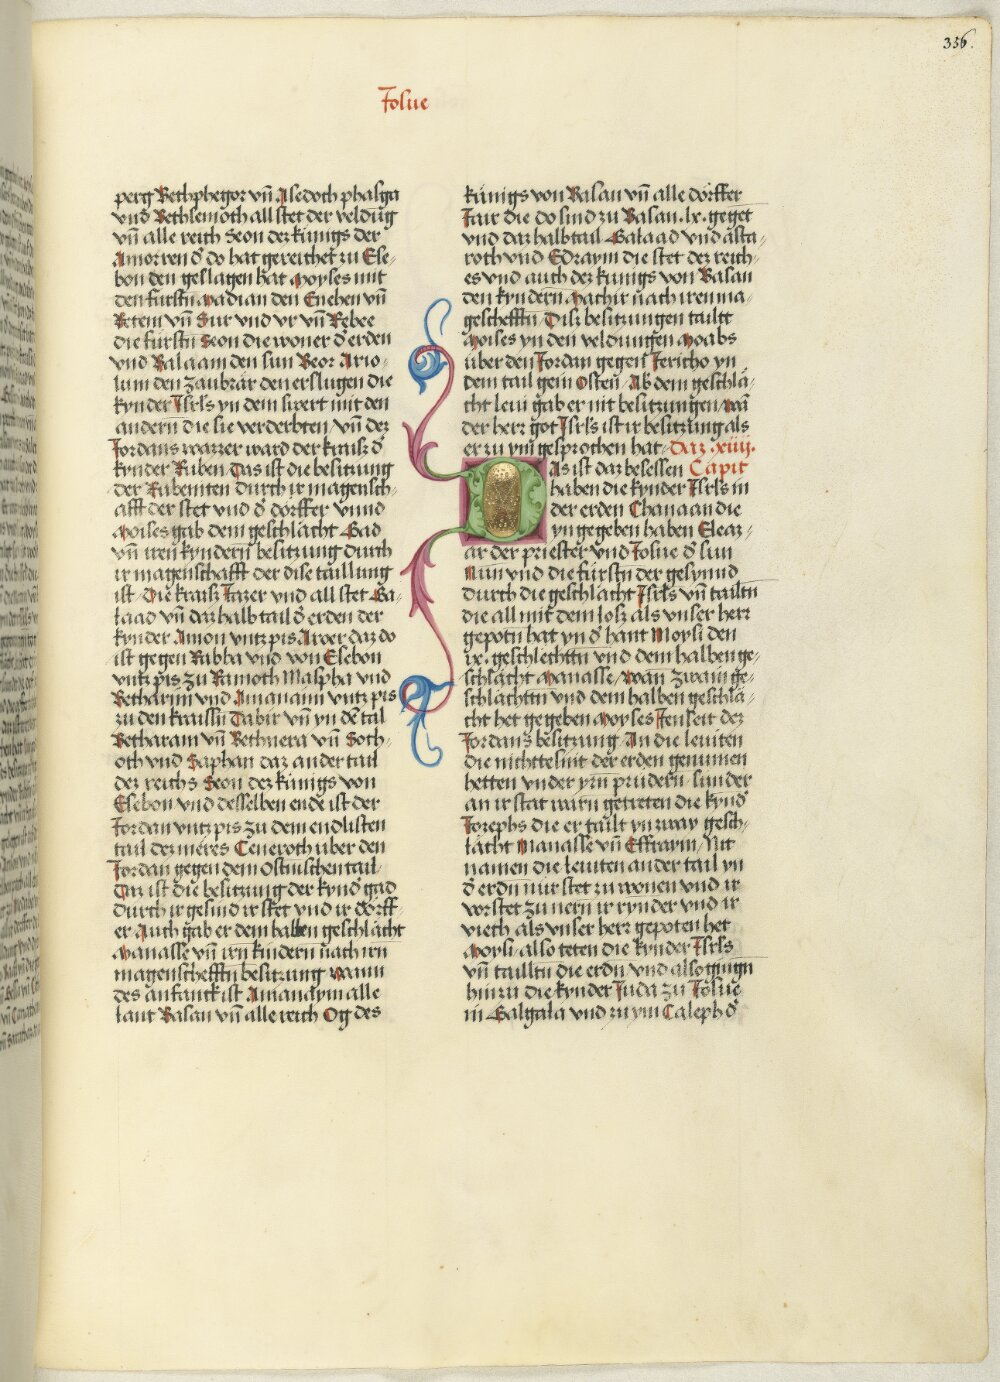 356.
Josue
perg Bethphegor vnd Asedoth phasga
vnd Bethsemoth all stet der veldung
vnd alle reich Seon dez kunigs der
Amorren d̕ do hat gereichet zu Ese-
bon den geslagen hat Moyses mit
den furstn̄ Madian den Eueben vn̄
Retem vn̄ Sur vnd vr vn̄ Rebee
die furstn̄ Seon die woner d̕ erden
vnd Balaam den sun Beor Ario-
lum den zaubrär den erslugen die
kynder Isrl̄s yn dem swert mit den
andern die sie verderbten vn̄ dez
Jordans wazzer ward der kraisz d̕
kynder Ruben Das ist die besitzung
der Rubeniten durch ir magensch-
afft der stet vnd d̕ dorffer vnnd
Moises gab dem geschlächt Gad
vn̄ iren kyndern besitzung durch
ir magenschafft der dise taillung
ist Die kraisz Jazer vnd all stet Ga-
laad vn̄ daz halb tail d̕ erden der
kynder Amon vntz pis Aroer daz do
ist gegen Rabba vnd von Esebon
vntz pis zu Ramoth Maspha vnd
Betharim vnd Amanaim vntz pis
zu den kraissn̄ Dabir vn̄ yn dē tal
Betharam vn̄ Bethnera vn̄ Soch-
oth vnd Saphan daz ander tail
dez reichs Seon dez kunigs von
Esebon vnd desselben ende ist der
Jordan vntz pis zu dem endlisten
tail dez meres Ceneroth uber den
Jordan gegen dem Ostnischen tail
Daz ist die besitzung der kynd̕ gad
durch ir gesind ir stet vnd ir dorff-
er Auch gab er dem halben geschlächt
Manasse vn̄ irn kindern nach irn
magenschefftn̄ besitzung wann
des anfanck ist Amanaym alle
lant Basan vn̄ alle reich Og des
kunigs von Basan vn̄ alle dorffer
Jair die do sind zu Basan .lx. geget
vnd daz halb tail Galaad vnd asta-
roth vnd Edraym die stet dez reich-
es vnd auch dez kunigs von Basan
den kyndern Machir nach iren ma-
geschefftn̄ Disz besitzungen tailt
Moises yn den veldungen Moabs
uber den Jordan gegen Jericho yn
dem tail gein Osten Ab dem geschlä-
cht leui gab er nit besitzungen wan̄
der herr got Isrl̄s ist ir besitzung als
er zu ym gesprochen hat Daz .xiiij.
Das ist daz besessen Capit
haben die kynder Isrl̄s in
der erden Chanaan die
yn gegeben haben Eleaz-
ar der priester vnd Josue d̕ sun
Nun vnd die furstn̄ der gesynnd
durch die geschlächt Isrl̄s vn̄ tailtn
die all mit dem losz als vnser herr
gepotn hat yn d̕ hant Moysi den
ix. geschlechttn vnd dem halben ge-
schlächt Manasse wan zwain ge-
schlächttn vnd dem halben geschlä-
cht het gegeben Moyses Jenseit dez
Jordans besitzung An die leuiten
die nichttesnit der erden genumen
hetten vnder yrn prudern sunder
an ir stat warn getreten die kynd̕
Josephs die er tailt yn zway gesch-
lächt Manasse vn̄ Effraym Nit
namen die leuiten ander tail yn
d̕ erdn nur stet zu wonen vnd ir
vorstet zu nern ir rynder vnd ir
viech als vnser herr gepoten het
Moysi also teten die kynder Isrl̄s
vn̄ tailltn die erdn vnd also gingn
hin zu die kynder Juda zu Josue
in Galgala vnd zu ym Caleph d̕